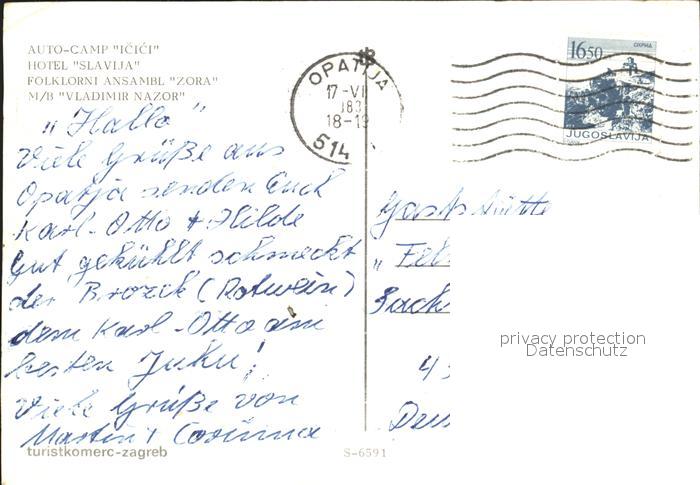 AUTO-CAMP "IČIĆI"
HOTEL "SLAVIJA"
FOLKLORNI ANSAMBL "ZORA"
M/B "VLADIMIR NAZOR"
OPATIJA
17-VI
83
18-19
514
16.50
ОХРИД
JUGOSLAVIJA
„Hallo"
Viele Grüße aus
Opatja senden Euch
Karl-Otto + Hilde
Gut gekühlt schmeckt
der Brozek (Rotwein)
dem Karl-Otto am
besten Juhu!
Viele Grüße von
Martin + Corinna
Gaststätte
privacy protection
Datenschutz
turistkomerc-zagreb
S-6591